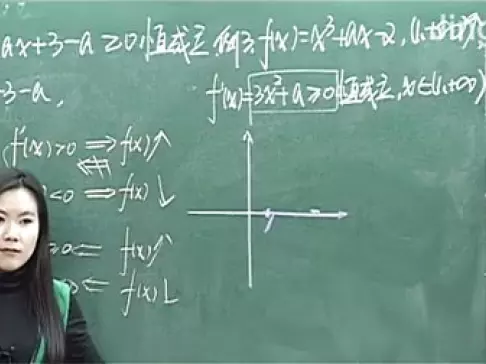 ax+3-a≥0恒成立. 例3: f(x)=x³+ax-2, (1,+∞)↗
-3-a, f'(x)=3x²+a≥0恒成立, x∈(1,+∞)
f'(x)>0 ⇒ f(x)↗
<0 ⇒ f(x)↓
≥0 ⇐ f(x)↗
⇐ f(x)↓